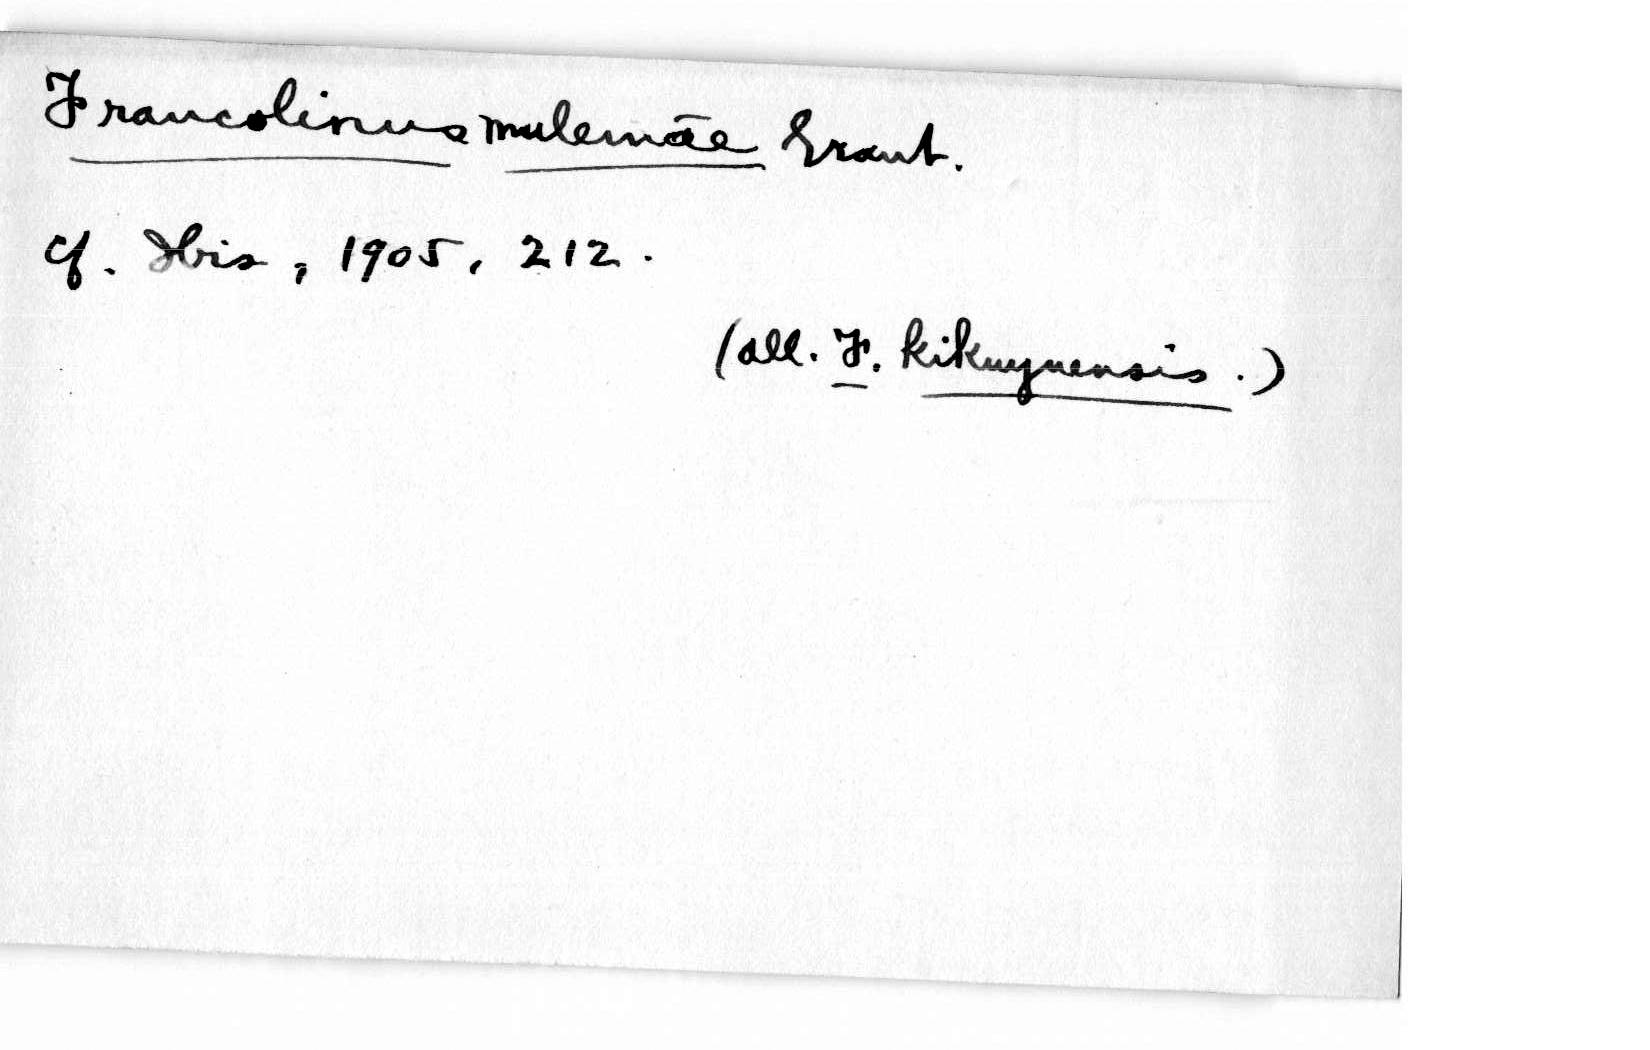 Francolinus mulemāe Grant.
cf. Ibis, 1905, 212.
(all. F. kikuyuensis.)